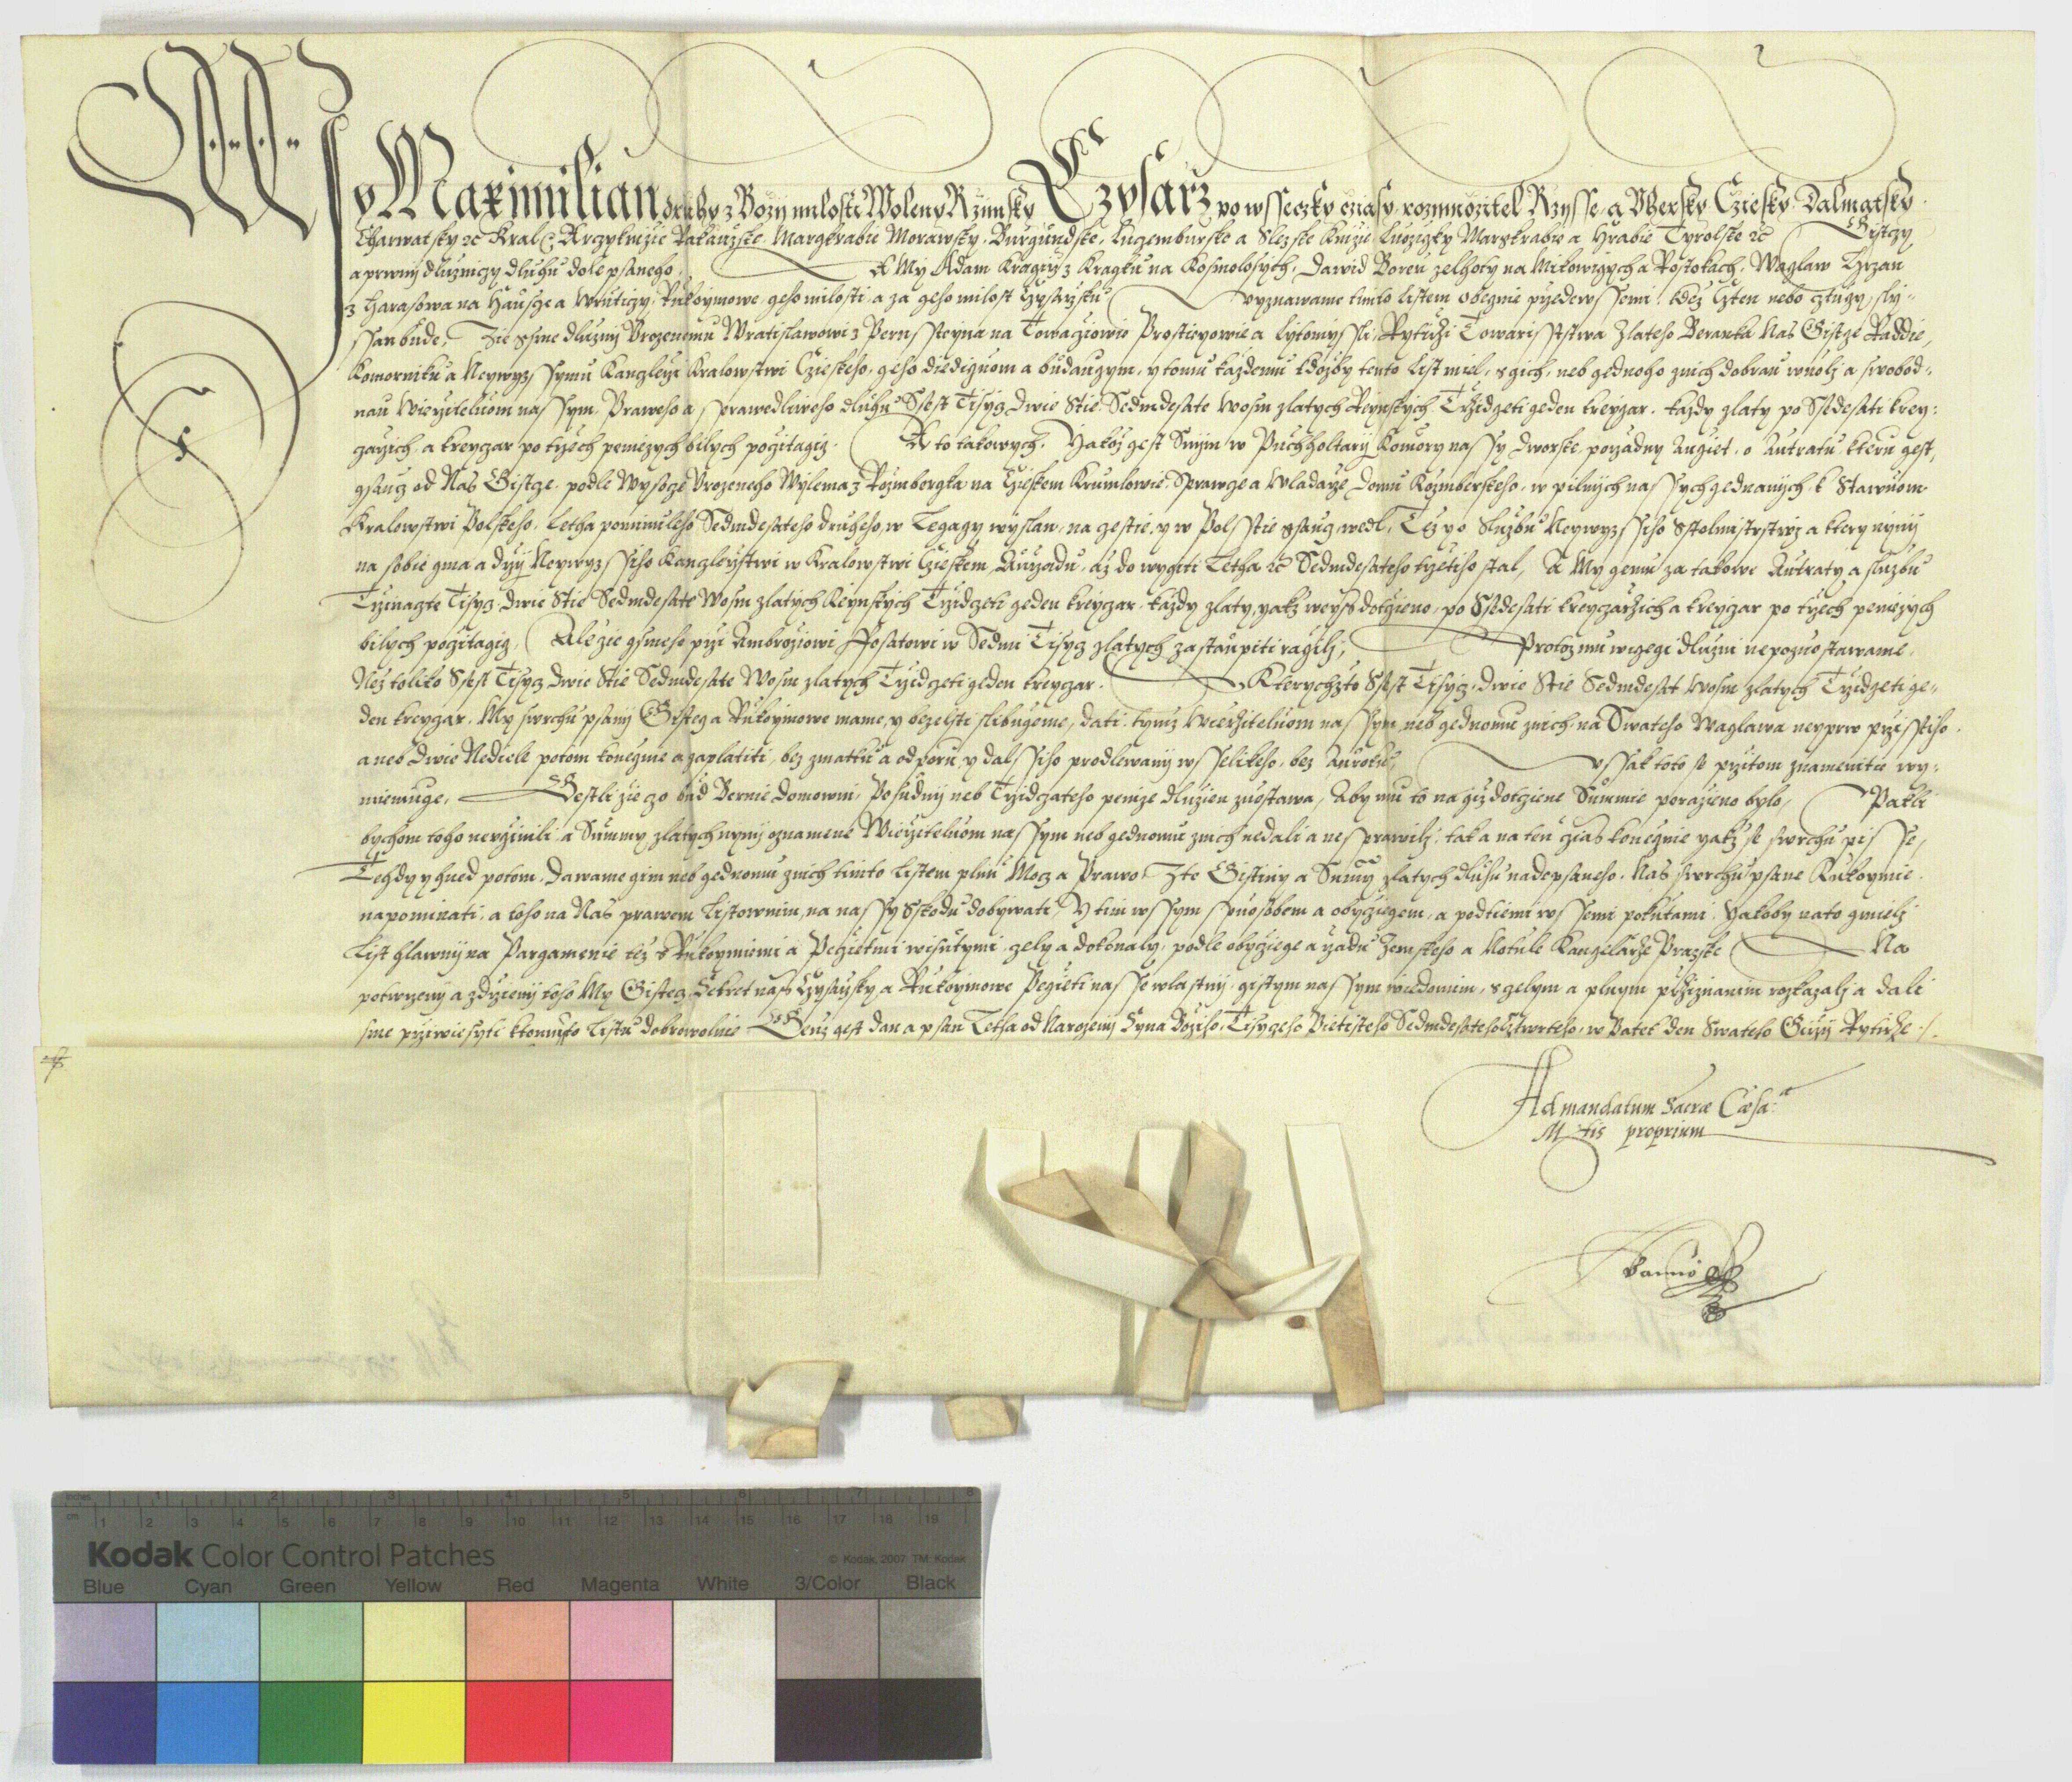 My Maximilian druhy z Bozij milosti Woleny Rzimsky Czysarz po wsseczky cziasy rozmnozitel Rzisse, a Vhersky Cziesky Dalmatsky
Charwatsky ꝛc Kral ꝛc Arczyknijze Rakauzske Margkrabie Morawsky, Burgundske, Luczemburske a Slezske Knijze Luziczky Margkrabie a Hrabie Tyrolske ꝛc Gistczy
a prwnij dluzniczy dluhu dole psaneho. A My Adam Kragirz z Kragku na Kosmonosych, Dawid Boren zelhoty na Mikowiczych a Rostokach, Waglaw Hrzan
z Harasowa na Hauscze a Wruticzy, Rukoymowe geho milosti a za geho milost Czysarzsku vyznawame timto listem obecznie przedewssemi, kdez Czten nebo cztucy sly-
ssan bude, Zie gsme dluzni Vrozenemu Wratislawowi z Pernssteyna na Towaczowie Prostiegowie a Lytomyssli, Rytirzi Towarisstwa Zlateho Beranka Nas Gistcze Raddie,
Komorniku a Neywyzssymu Kanczlerzi Kralowstwi Czieskeho, geho diediczuom a buducym, y tomu kazdemu kdozby tento List miel, s gich, neb gednoho znich dobrau wuoli a swobod-
nau Wierziteluom nassym, Praweho a sprawedliweho dluhu Ssest Tisycz Dwie Stie Sedmdesate Wosm zlatych Reynskych Trzidczeti geden kreyczar, kazdy zlaty po Ssedesati krey-
czarzich, a kreyczar po trzech peniezych bilych pocitagicz. A to takowych, Yakoz gest Snijm w Puchholtarij Komory nassy Dworske, porzadny Auczet, o Autratu kteru gest,
gsaucz od Nas Gistcze, podle Wysocze Vrozeneho Wylema z Rozmbergka na Czieskem Krumlowie, Sprawcze a Wladarze Domu Rozmberskeho, w pilnych nassych gednanych k Stawuom
Kralowstwi Polskeho, Letha pominuleho Sedmdesateho druheho, w Legacy wyslan, na cestie, y w Polsstie gsaucz wedl, Tez po Sluzbu Neywyzssiho Hofmistrstwi a ktery nynij
na sobie gma a drzij Neywyzssiho Kanczlerzstwi w Kralowstwi Czieskem Aurzadu, az do wygiti Letha ꝛc Sedmdesateho trzetiho stal, A My gemu za takowe Autraty a sluzbu
Trzinaczte Tisycz Dwie Stie Sedmdesate Wosm zlatych Reynskych Trzidczeti geden kreyczar, kazdy zlaty, yakz weyss dotczieno, po Ssedesati kreyczarzich a kreyczar po trzech peniezych
bilych pocitagicz, Ale zie gsme ho przi Ambroziowi w Sedmi Tisycz zlatych zastaupiti racili, Protoz mu wiczegi dluzni nepozuostawame,
Nez toliko Ssest Tisycz Dwie Stie Sedmdesate Wosm zlatych Trzidczeti geden kreyczar. Kterychzto Ssest Tisycz, Dwie Stie Sedmdesat Wosm zlatych Trzidczeti ge-
den kreyczar, My swrchu psanij Gistecz a Rukoymowe mame, y bezelsti slibugeme, dati tymz Wierziteluom nassym, neb gednomu znich, na Swateho Waglawa neyprw przisstiho
aneb dwie Nediele potom konecznie a zaplatiti, bez zmatku a odporu, y dalssiho prodlewanij wsselikeho, bez Aurokuw, Wssak toto se przitom znamenitie wy-
mienuge, Gestli zie czo bud Bernie Domowni, Posudnij neb Trzidczateho penize dluzien zuostawa, Aby mu to na giz dotcziene Summie porazieno bylo, Pakli
bychom toho nevczinili, a Summy zlatych nynij oznamene Wierziteluom nassym neb gednomu znich nedali a nesprawili, tak a na ten czias konecznie yakz se swrchu pisse,
Tehdy y hned potom, dawame gim neb gednomu znich timto Listem plnu Mocz a Prawo, Zte Gistiny a Summy zlatych dluhu nadepsaneho, Nas swrchu psane Rukoymie
napominati, a toho na Nas prawem Listownim, na nassy Sskodu dobywati, Y tim wssym spuosobem a obycziegem, a podtiemi wssemi pokutami, Yakoby nato gmieli
List hlawnij na Pargamenie tez s Rukoymiemi a Peczietmi wisutymi, czely a dokonaly, podle obyczege a rzadu Zemskeho a Notule Kanczelarze Prazske Na
potwrzenij a zdrzienij toho My Gistecz, Sekret nass Czysarzsky a Rukoymowe Peczieti nasse wlastnij, gistym nassym wiedomim, s czelym a plnym przizianim rozkazali a dali
sme przywiesyti ktomuto Listu dobrowolnie Genz gest dan a psan Letha od Narozenij Syna Boziho, Tisyczeho Pietisteho Sedmdesateho cztwrteho, w Patek den Swateho Girzij Rytirze
Ad mandatum Sacræ Cæsa:ͤ
Mtis proprium